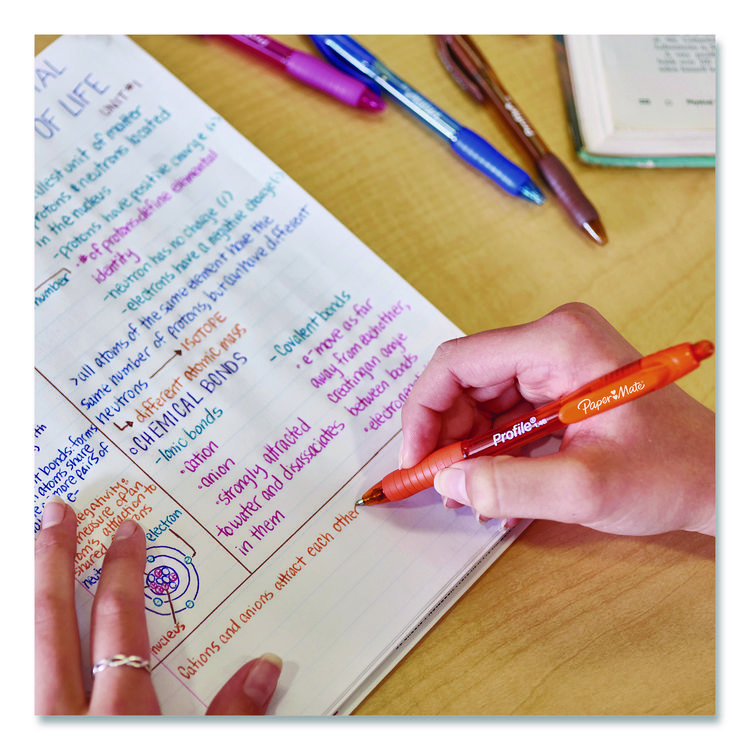 OF LIFE
UNIT #1
unit of matter
protons & neutrons located
in the nucleus
-protons have positive charge
*# of protons define elemental
identity
-neutron has no charge
-electrons have a negative charge
number
>all atoms of the same element have the
same number of protons, but can have different
neutrons → ISOTOPE
↳ different atomic mass
CHEMICAL BONDS
-Ionic bonds
·cation
·anion
·strongly attracted
to water and disassociates
in them
-Covalent bonds
·e- move as far
away from each other,
creating an angle
between bonds
bonds-forms
atoms share
more pairs of
e-
measure of an
attraction to
shared
electron
nucleus
Cations and anions attract each other
Profile
Paper Mate